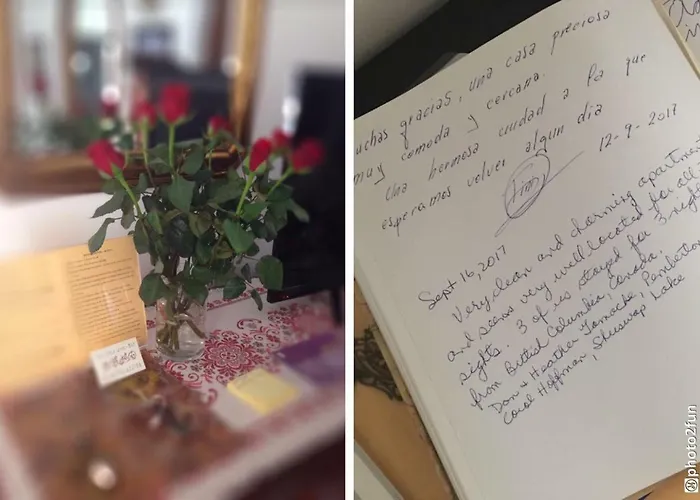 uchas gracias, una casa preciosa
muy comoda y cercana.
Una hermosa ciudad a la que
esperamos volver algun dia
12-9-2017
Sept 16, 2017
Very clean and charming apartment
and seems very well located for all
sights. 3 of us stayed for 3 nights
from British Columbia, Canada.
Don & Heather Pemberton
Carol Hoffman, Shuswap Lake
photo2fun